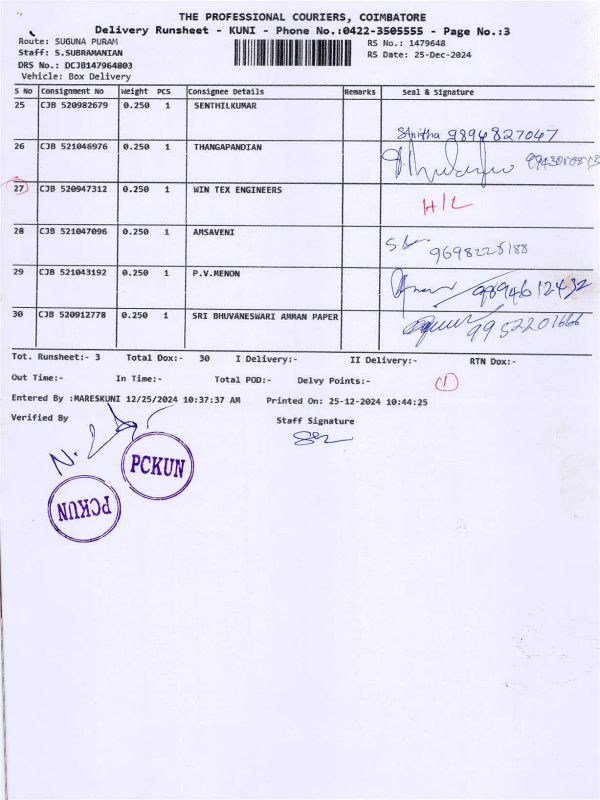 THE PROFESSIONAL COURIERS, COIMBATORE
Delivery Runsheet - KUNI - Phone No.:0422-3505555 - Page No.:3
Route: SUGUNA PURAM
RS No.: 1479648
Staff: S.SUBRAMANIAN
RS Date: 25-Dec-2024
DRS No.: DCJB147964803
Vehicle: Box Delivery
S No Consignment No Weight PCS Consignee Details Remarks Seal & Signature
25 CJB 520982679 0.250 1 SENTHILKUMAR
9894827047
26 CJB 521046976 0.250 1 THANGAPANDIAN
27 CJB 520947312 0.250 1 WIN TEX ENGINEERS
H/L
28 CJB 521047096 0.250 1 AMSAVENI
9698225188
29 CJB 521043192 0.250 1 P.V.MENON
9894612432
30 CJB 520912778 0.250 1 SRI BHUVANESWARI AMMAN PAPER
9952201666
Tot. Runsheet:- 3 Total Dox:- 30 I Delivery:- II Delivery:- RTN Dox:-
Out Time:- In Time:- Total POD:- Delvy Points:- 1
Entered By :MARESKUNI 12/25/2024 10:37:37 AM Printed On: 25-12-2024 10:44:25
Verified By Staff Signature
PCKUN
PCKUN